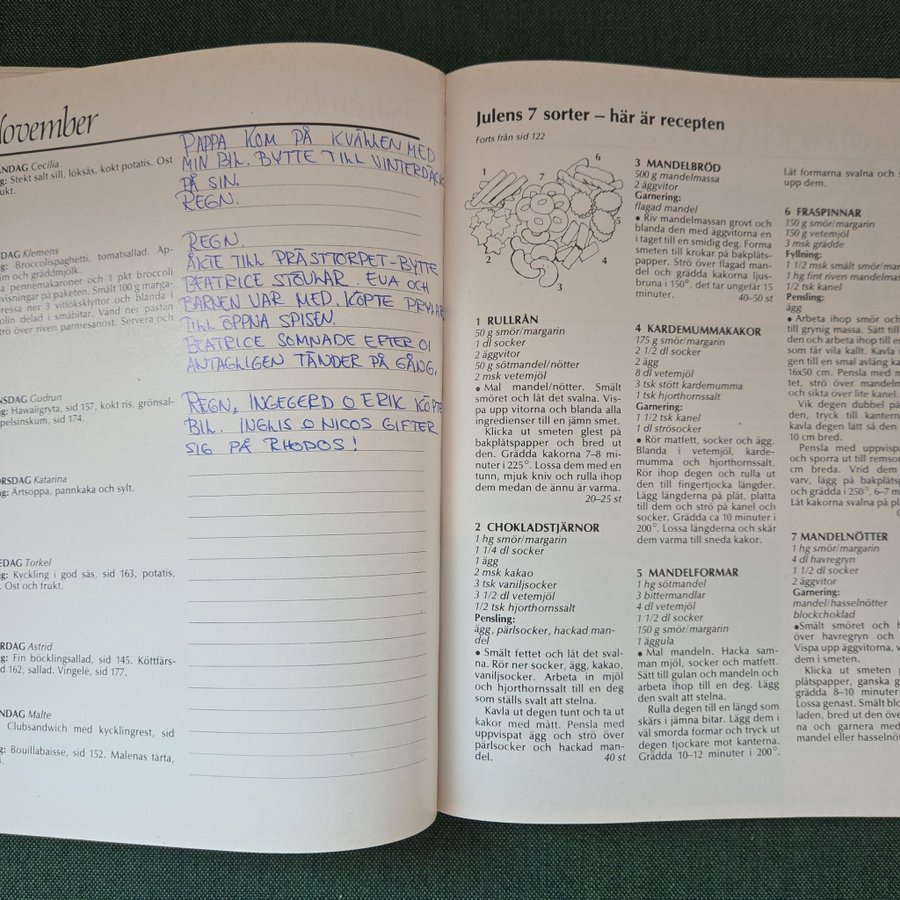 November
NDAG Cecilia
ng: Stekt salt sill, löksås, kokt potatis. Ost
rukt.
PAPPA KOM PÅ KVÄLLEN MED
MIN BIL. BYTTE TILL VINTERDÄCK
PÅ SIN.
REGN.
DAG Klemens
g: Broccolispaghetti, tomatsallad. Äp-
m och gräddmjölk.
a pennemakaroner och 1 pkt broccoli
visningar på paketen. Smält 100 g marga-
ressa ner 3 vitlöksklyftor och blanda i
olin delad i småbitar. Vänd ner pastan
trö över riven parmesanost. Servera och
REGN.
ÅKTE TILL PRÄSTTORPET-BYTTE
BEATRICE STÖVLAR. EVA OCH
BARNEN VAR MED. KÖPTE PRYLAR
TILL ÖPPNA SPISEN.
BEATRICE SOMNADE EFTER 01
ANTAGLIGEN TÄNDER PÅ GÅNG.
NSDAG Gudrun
g: Hawaiigryta, sid 157. kokt ris, grönsal-
pelsinskum, sid 174.
REGN, INGEGERD O ERIK KÖPTE
BIL. O NICOS GIFTER
SIG PÅ RHODOS!
RSDAG Katarina
ng: Ärtsoppa, pannkaka och sylt.
EDAG Torkel
ng: Kyckling i god sås, sid 163, potatis,
. Ost och frukt.
RDAG Astrid
ng: Fin böcklingsallad, sid 145. Köttfärs-
d 162, sallad. Vingelé, sid 177.
NDAG Malte
Clubsandwich med kycklingrest, sid
g: Bouillabaisse, sid 152. Malenas tårta,
Julens 7 sorter – här är recepten
Forts från sid 122
1 2 3 4 5 6 7
1 RULLRÅN
50 g smör/margarin
1 dl socker
2 äggvitor
50 g sötmandel/nötter
2 msk vetemjöl
• Mal mandel/nötter. Smält
smöret och låt det svalna. Vis-
pa upp vitorna och blanda alla
ingredienser till en jämn smet.
Klicka ut smeten glest på
bakplåtspapper och bred ut
den. Grädda kakorna 7–8 mi-
nuter i 225°. Lossa dem med en
tunn, mjuk kniv och rulla ihop
dem medan de ännu är varma.
20–25 st
2 CHOKLADSTJÄRNOR
1 hg smör/margarin
1 1/4 dl socker
1 ägg
2 msk kakao
3 tsk vaniljsocker
3 1/2 dl vetemjöl
1/2 tsk hjorthornssalt
Pensling:
ägg, pärlsocker, hackad man-
del
• Smält fettet och låt det sval-
na. Rör ner socker, ägg, kakao,
vaniljsocker. Arbeta in mjöl
och hjorthornssalt till en deg
som ställs svalt att stelna.
Kavla ut degen tunt och ta ut
kakor med mått. Pensla med
uppvispat ägg och strö över
pärlsocker och hackad man-
del. 40 st
3 MANDELBRÖD
500 g mandelmassa
2 äggvitor
Garnering:
flagad mandel
• Riv mandelmassan grovt och
blanda den med äggvitorna en
i taget till en smidig deg. Forma
smeten till krokar på bakplåts-
papper. Strö över flagad man-
del och grädda kakorna ljus-
bruna i 150°, det tar ungefär 15
minuter. 40–50 st
4 KARDEMUMMAKAKOR
175 g smör/margarin
2 1/2 dl socker
2 ägg
8 dl vetemjöl
3 tsk stött kardemumma
1 tsk hjorthornssalt
Garnering:
1 1/2 tsk kanel
1 dl strösocker
• Rör matfett, socker och ägg.
Blanda i vetemjöl, karde-
mumma och hjorthornssalt.
Rör ihop degen och rulla ut
den till fingertjocka längder.
Lägg längderna på plåt, platta
till dem och strö på kanel och
socker. Grädda ca 10 minuter i
200°. Lossa längderna och skär
dem varma till sneda kakor.
5 MANDELFORMAR
1 hg sötmandel
3 bittermandlar
4 dl vetemjöl
1 1/2 dl socker
150 g smör/margarin
1 äggula
• Mal mandeln. Hacka sam-
man mjöl, socker och matfett.
Sätt till gulan och mandeln och
arbeta ihop till en deg. Lägg
den svalt att stelna.
Rulla degen till en längd som
skärs i jämna bitar. Lägg dem i
väl smorda formar och tryck ut
degen tjockare mot kanterna.
Grädda 10–12 minuter i 200°.
Låt formarna svalna och
upp dem.
6 FRASPINNAR
150 g smör/margarin
150 g vetemjöl
3 msk grädde
Fyllning:
1 1/2 msk smält smör/mar
1 hg fint riven mandelmas
1/2 tsk kanel
Pensling:
ägg
• Arbeta ihop smör och
till grynig massa. Sätt till
den och arbeta ihop till e
som får vila kallt. Kavla
gen till en smal avlång ka
16x50 cm. Pensla med m
tet, strö över mandelm
och sikta över lite kanel.
Vik degen dubbel på
den, tryck till kanterna
kavla degen lätt så den
10 cm bred.
Pensla med uppvispat
och sporra ut till remsor
cm breda. Vrid dem
varv, lägg på bakplåtsp
och grädda i 250°, 6–7 m
Låt kakorna svalna på pl
7 MANDELNÖTTER
1 hg smör/margarin
4 dl havregryn
1 1/2 dl socker
2 äggvitor
Garnering:
mandel/hasselnötter
blockchoklad
•Smält smöret och h
över havregryn och
Vispa upp äggvitorna, v
dem i smeten.
Klicka ut smeten
plåtspapper, ganska g
grädda 8–10 minuter
Lossa genast. Smält blo
laden, bred ut den över
na och garnera med
mandel eller hasselnöt